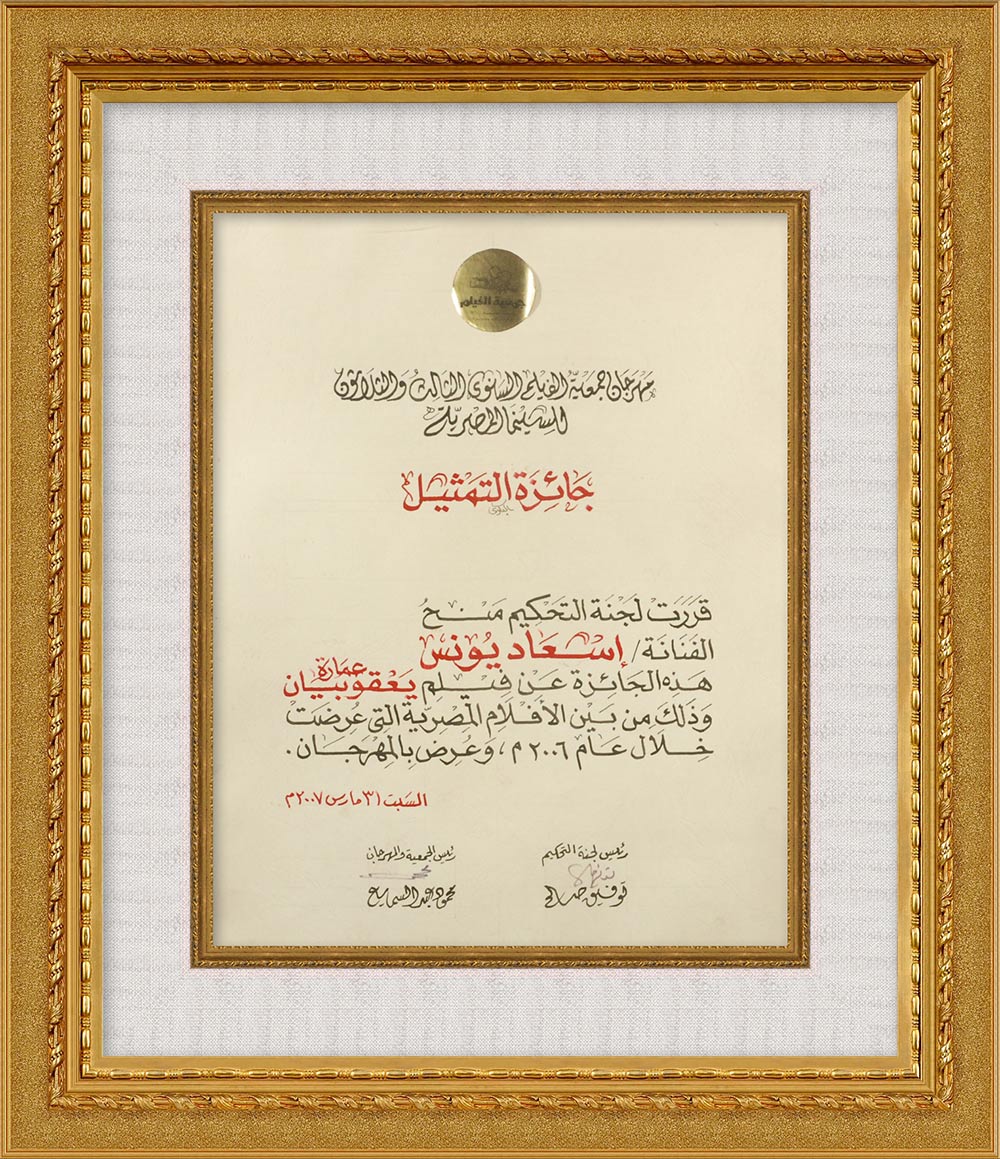 جمعية الفيلم
مهرجان جمعية الفيلم السنوى الثالث والثلاثون
للسينما المصرية
جائزة التمثيل
قررت لجنة التحكيم منح
الفنانة/ إسعاد يونس
هذه الجائزة عن فيلم عمارة يعقوبيان
وذلك من بين الأفلام المصرية التى عرضت
خلال عام ٢٠٠٦ م، وعرض بالمهرجان.
السبت ٣١ مارس ٢٠٠٧م
رئيس لجنة التحكيم
توفيق صالح
رئيس الجمعية والمهرجان
محمود عبد السميع